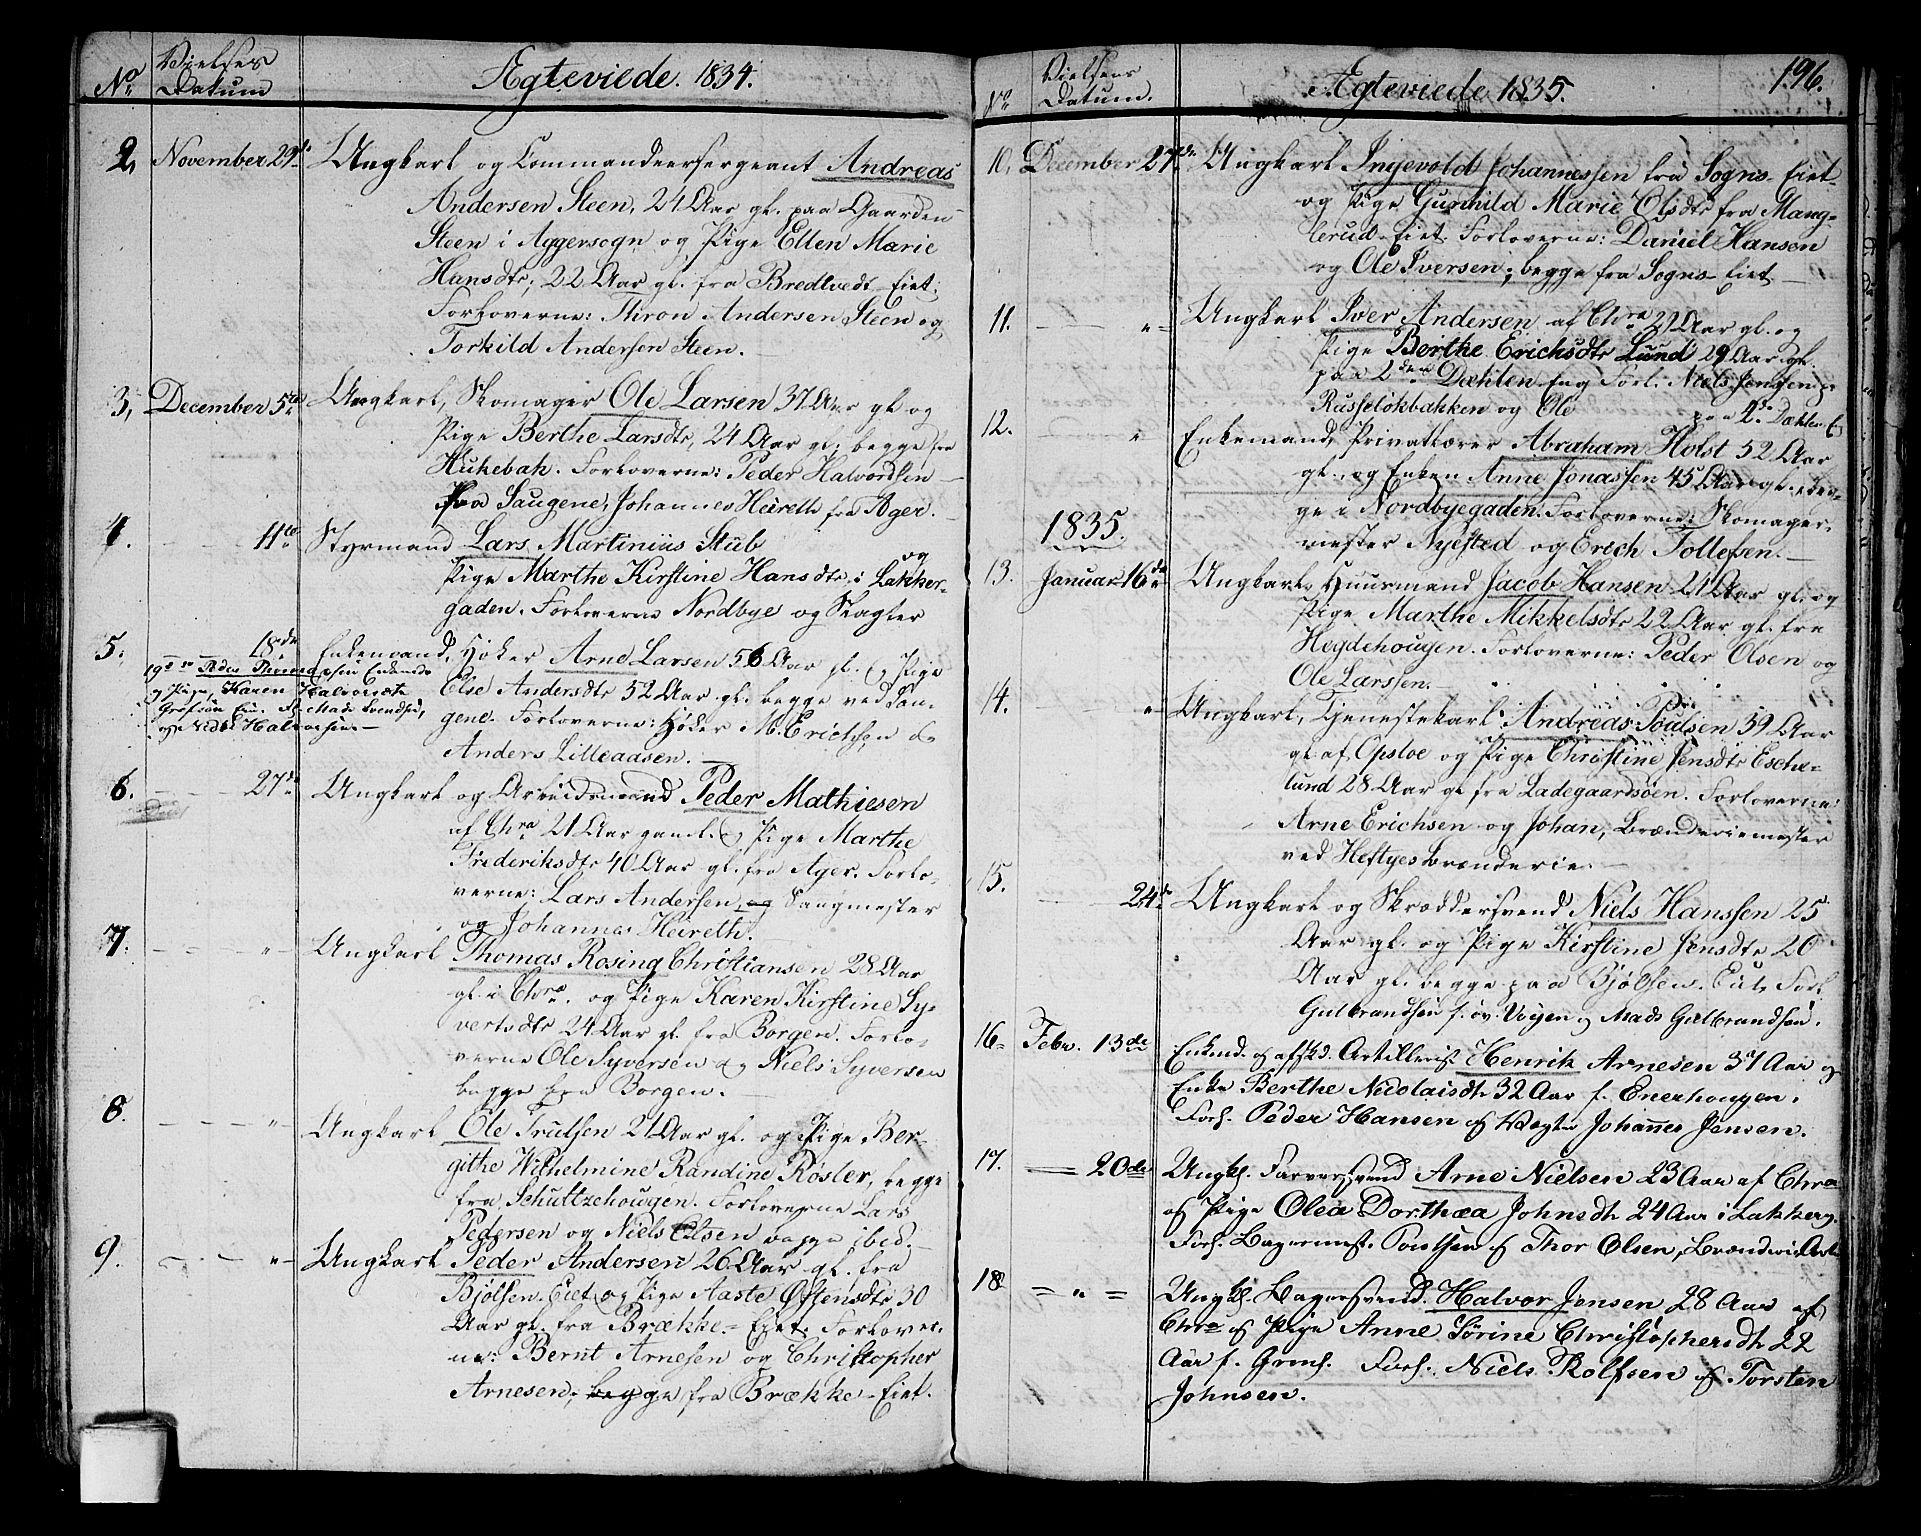 No Vielses Datum Ægteviede. 1834.
2, November 29de Ungkarl og Commandeersergeant Andreas
Andersen Steen, 24 Aar gl. paa Gaarden
Steen i Aggersogn og Pige Ellen Marie
Hansdtr, 22 Aar gl. fra Bredtvedt-Eiet;
Forloverne: Thron Andersen Steen og
Torkild Andersen Steen.
3, December 5te Ungkarl, Skomager Ole Larsen 37 Aar gl. og
Pige Berthe Larsdtr, 24 Aar gl., begge fra
Hukebak. Forloverne: Peder Halvordsen
paa Saugene, Johannes Heireth fra Ager.
4. 11te Styrmand Lars Martinius Stub og
Pige Marthe Kirstine Hansdtr, i Lakker-
gaden. Forloverne Nordbye og Slagter
5. 18de Enkemand, Høker Arne Larsen 56 Aar gl. og Pige
Else Andersdtr 52 Aar gl. begge ved Sau-
gene. Forloverne: Høker M. Erichsen &
Anders Lilleaasen.
19de Peder Thomassen Enkemd
og Pige Karen Halvorsdtr
Grefsen Eie. F. Mads Svendsen,
og Halvorsen
6. 27de Ungkarl og Arbeidsmand Peder Mathiesen
af Chra 21 Aar gaml. og Pige Marthe
Frederiksdtr 40 Aar gl. fra Ager. Forlo-
verne: Lars Andersen og Saugmester
og Johannes Heireth.
7. " Ungkarl Thomas Rosing Christiansen 28 Aar
gl. i Chra. og Pige Karen Kirstine Sy-
vertsdtr 24 Aar gl. fra Borgen. Forlo-
verne Ole Syversen og Niels Syversen
begge fra Borgen.
8. " Ungkarl Ole Trulsen 21 Aar gl. og Pige Ber-
githe Wilhelmine Randine Røsler, begge
fra Schultzehougen. Forloverne Lars
Pedersen og Niels Olsen begge ibid.
9. " Ungkarl Peder Andersen 26 Aar gl. fra
Bjølsen-Eiet og Pige Aaste Østensdtr 30
Aar gl. fra Brække-Eiet. Forlover-
ne: Bernt Arnesen og Christopher
Arnesen, begge fra Brække-Eiet.
No Vielsens Datum. Ægteviede 1835. 196.
10, December 27de Ungkarl Ingevold Johannessen fra Sogns-Eiet
og Pige Gunhild Marie Olsdtr fra Mang-
lerud-Eiet. Forloverne: Daniel Hansen
og Ole Iversen; begge fra Sogns-Eiet
11. " Ungkarl Iver Andersen af Chra 21 Aar gl. og
Pige Berthe Erichsdtr Lund 29 Aar gl.
paa 2den Dæhlen Eng Forl: Niels Jensen p.
Russeløkbakken og Ole paa 2de Dæhlen E
12. " Enkemand, Privatlærer Abraham Holst 52 Aar
gl., og Enken Anne Jonassen 45 Aar gl., beg-
ge i Nordbyegaden. Forloverne: Skomager-
mester Nyested og Erich Tollefsen.
1835.
13. Januar 16de Ungkarl, Huusmand Jacob Hansen 21 Aar gl. og
Pige Marthe Mikkelsdtr 22 Aar gl. fra
Hegdehougen. Forloverne: Peder Olsen og
Ole Larssen.
14. " Ungkarl, Tjenestekarl Andreas Poulsen 39 Aar
gl. af Opsloe og Pige Christine Jensdtr Esche-
lund 28 Aar gl. fra Ladegaardsøen. Forloverne:
Arne Erichsen og Johan, Brænderiemester
ved Heftyes Brænderie.
15. 24de Ungkarl og Skræddersvend Niels Hanssen 25
Aar gl. og Pige Kirstine Jensdtr 20
Aar gl. begge paa Bjølsen. Forl.
Gulbrandsen f. øv: Voyen og Mads Gulbrandsen.
16. Febr. 13de Enkmd. og affkd. Artillerist Henrik Arnesen 37 Aar og
Enke Berthe Nicolaisdtr 32 Aar f. Enerhougen.
Forl. Peder Hansen og Vægter Johannes Jensen.
17. 20de Ungkl. Farversvend Arne Nielsen 23 Aar af Chra
og Pige Olea Dorthæa Johnsdtr 24 Aar i Lakkerg.
Forl. Bagermest. Poulsen og Thor Olsen, Brænderie
18 " Ungkl. Bagersvend. Halvor Jensen 28 Aar af
Chra og Pige Anne Sørine Christophersdtr 22
Aar f. Grons. Forl. Niels Rolfsen og Torsten
Johnsen.